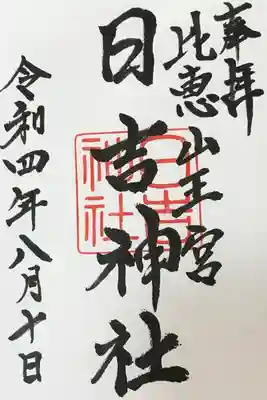 奉拝
比恵山王宮
日吉神社
日吉神社
令和四年八月十日